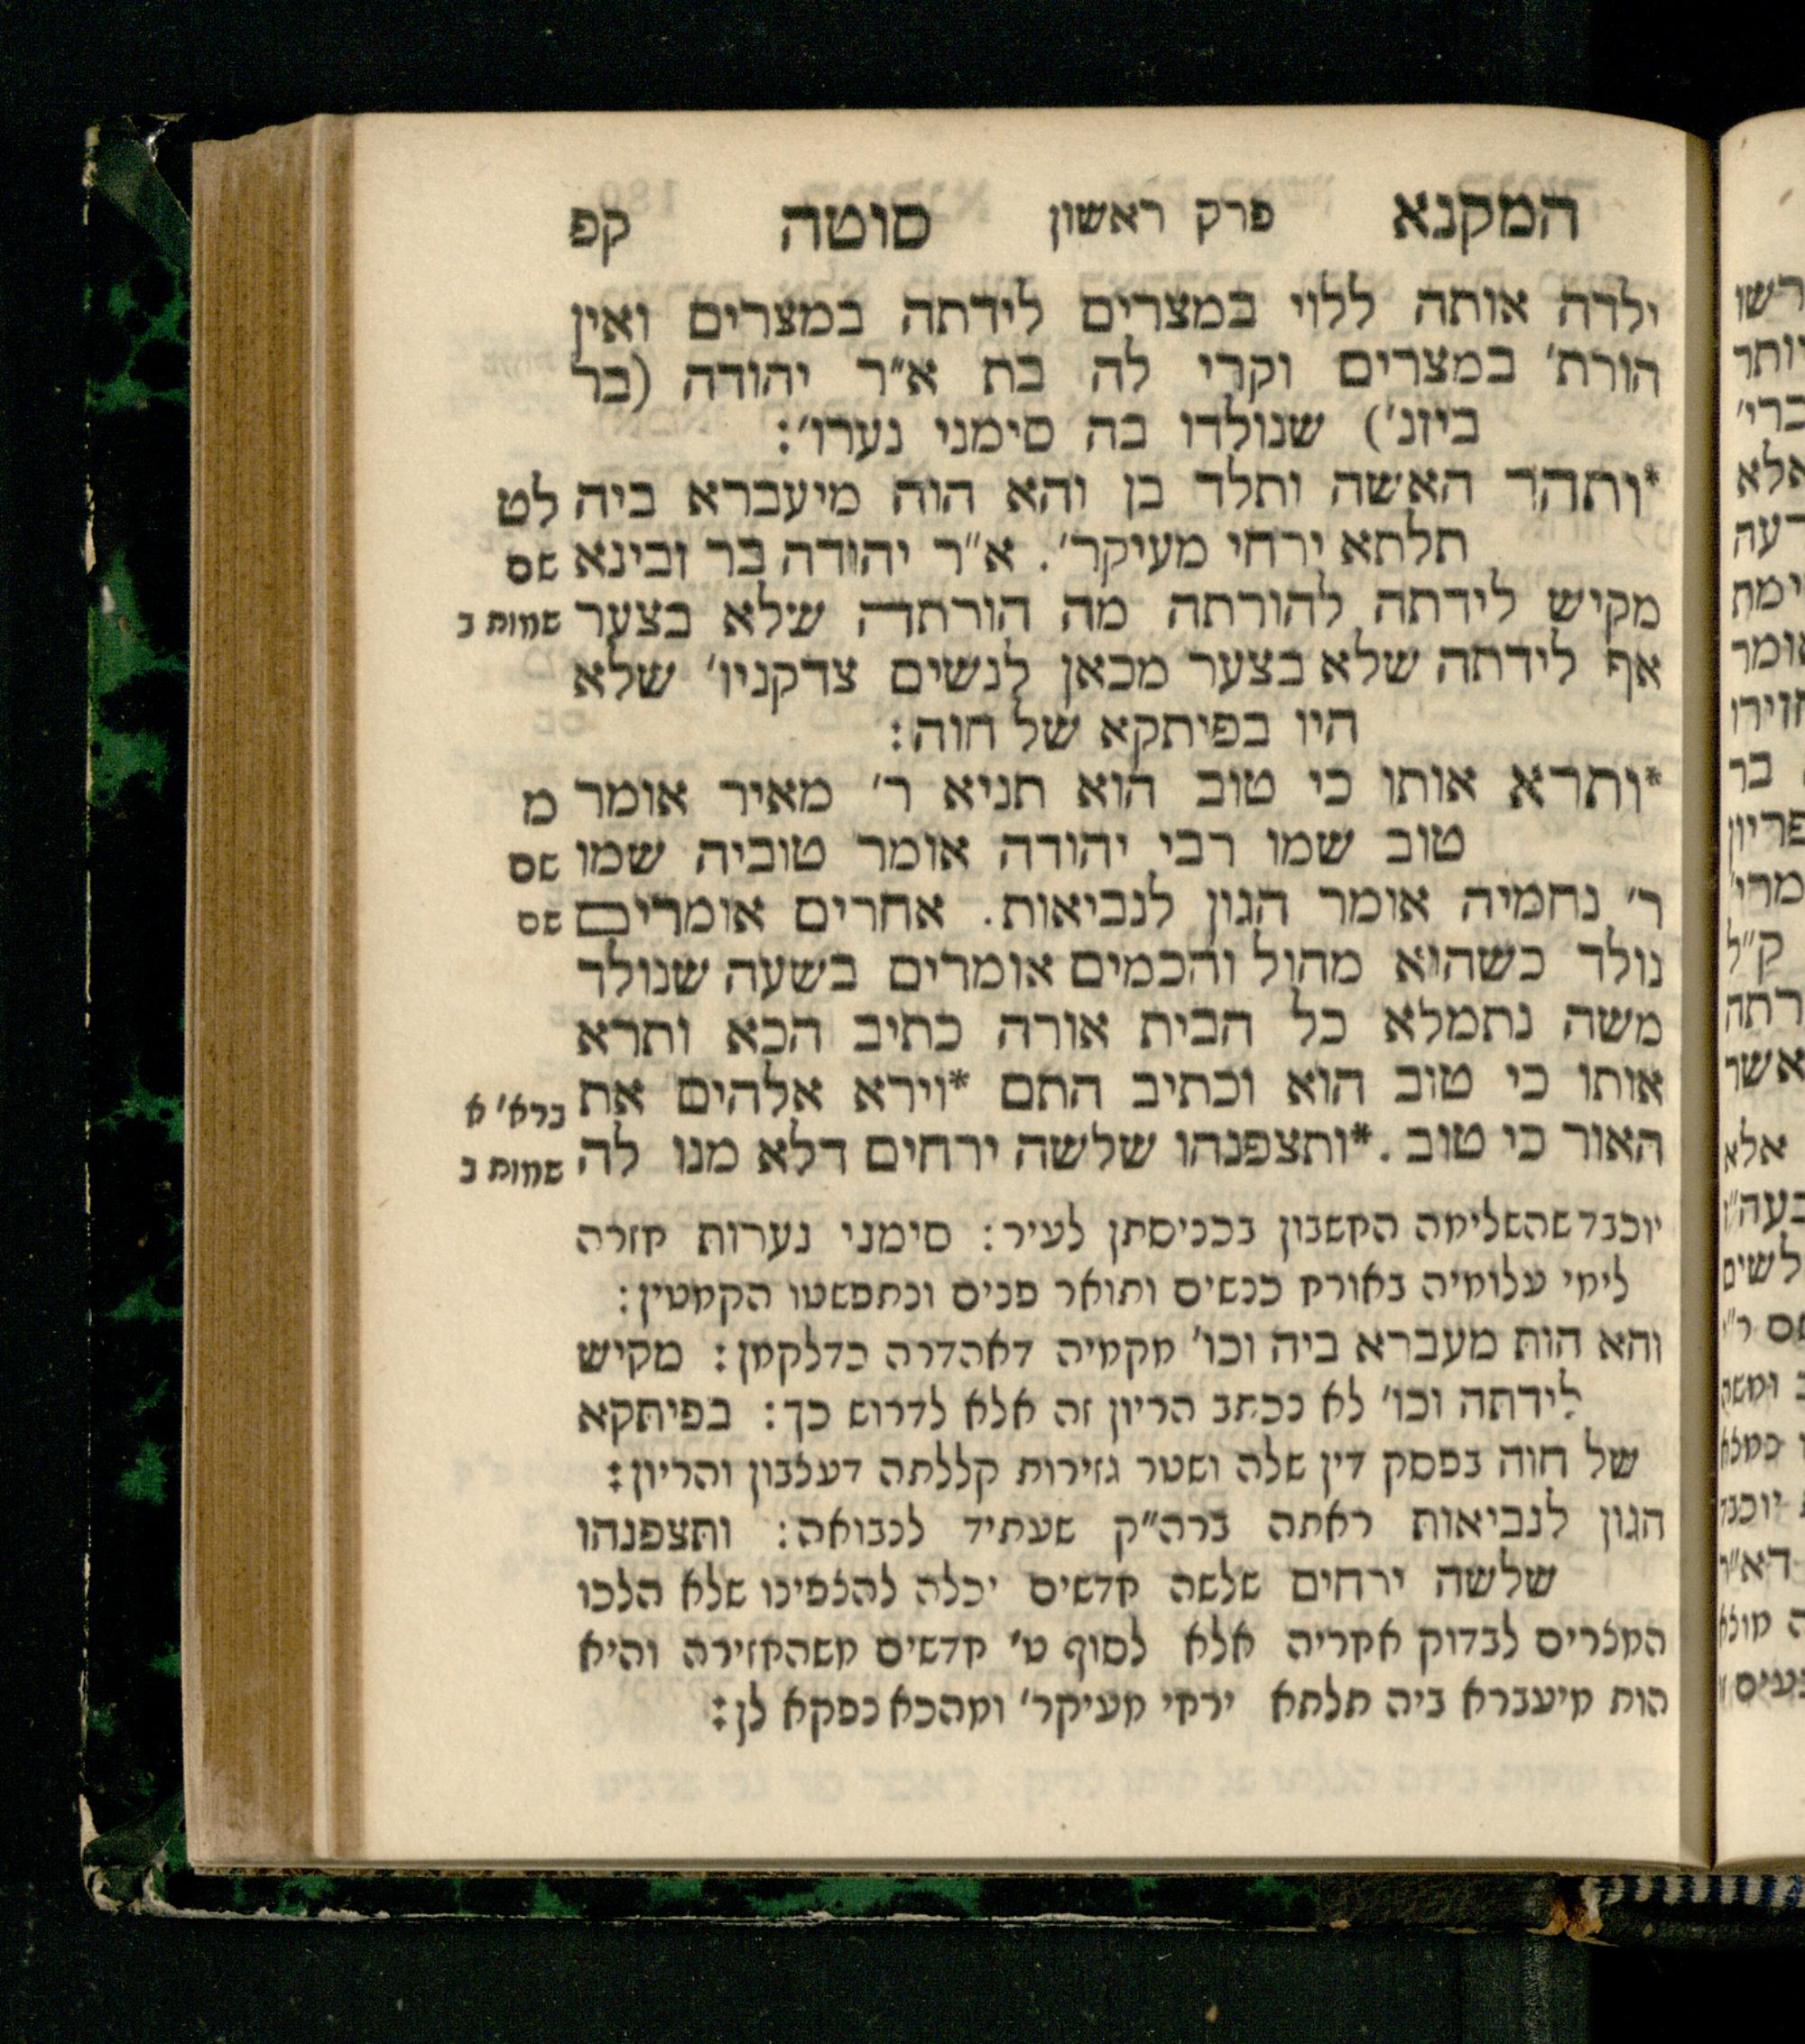 המקנא פרק ראשון סוטה קפ
ילדה אותה ללוי במצרים לידתה במצרים ואין
הורת׳ במצרים וקרי לה בת א״ר יהודה (בר
ביזנ׳) שנולדו בה סימני נערו׳:
*ותהר האשה ותלד בן והא הוה מיעברא ביה לט
תלתא ירחי מעיקר׳. א״ר יהודה בר זבינא שם
מקיש לידתה להורתה מה הורתה שלא בצער שמות ב
אף לידתה שלא בצער מכאן לנשים צדקניו׳ שלא
היו בפיתקא של חוה:
*ותרא אותו כי טוב הוא תניא ר׳ מאיר אומר מ
טוב שמו רבי יהודה אומר טוביה שמו שם
ר׳ נחמיה אומר הגון לנביאות. אחרים אומרים שם
נולד כשהוא מהול וחכמים אומרים בשעה שנולד
משה נתמלא כל הבית אורה כתיב הכא ותרא
אותו כי טוב הוא וכתיב התם *וירא אלהים את ברא׳ א
האור כי טוב. *ותצפנהו שלשה ירחים דלא מנו לה שמות ב
יוכבד שהשלימה החשבון בכניסתן לעיר: סימני נערות חזרה
לימי עלומיה באורח כנשים ותואר פנים ונתפשטו הקמטין:
והא הות מעברא ביה וכו׳ מקמיה דאהדרה כדלקמן: מקיש
לידתה וכו׳ לא נכתב הריון זה אלא לדרוש כך: בפיתקא
של חוה בפסק דין שלה ושטר גזירות קללתה דעצבון והריון:
הגון לנביאות ראתה ברה״ק שעתיד לנבואה: ותצפנהו
שלשה ירחים שלשה חדשים יכלה להצפינו שלא הלכו
המצרים לבדוק אחריה אלא לסוף ט׳ חדשים משהחזירה והיא
הות מיעברא ביה תלתא ירחי מעיקר׳ ומהכא נפקא לן: